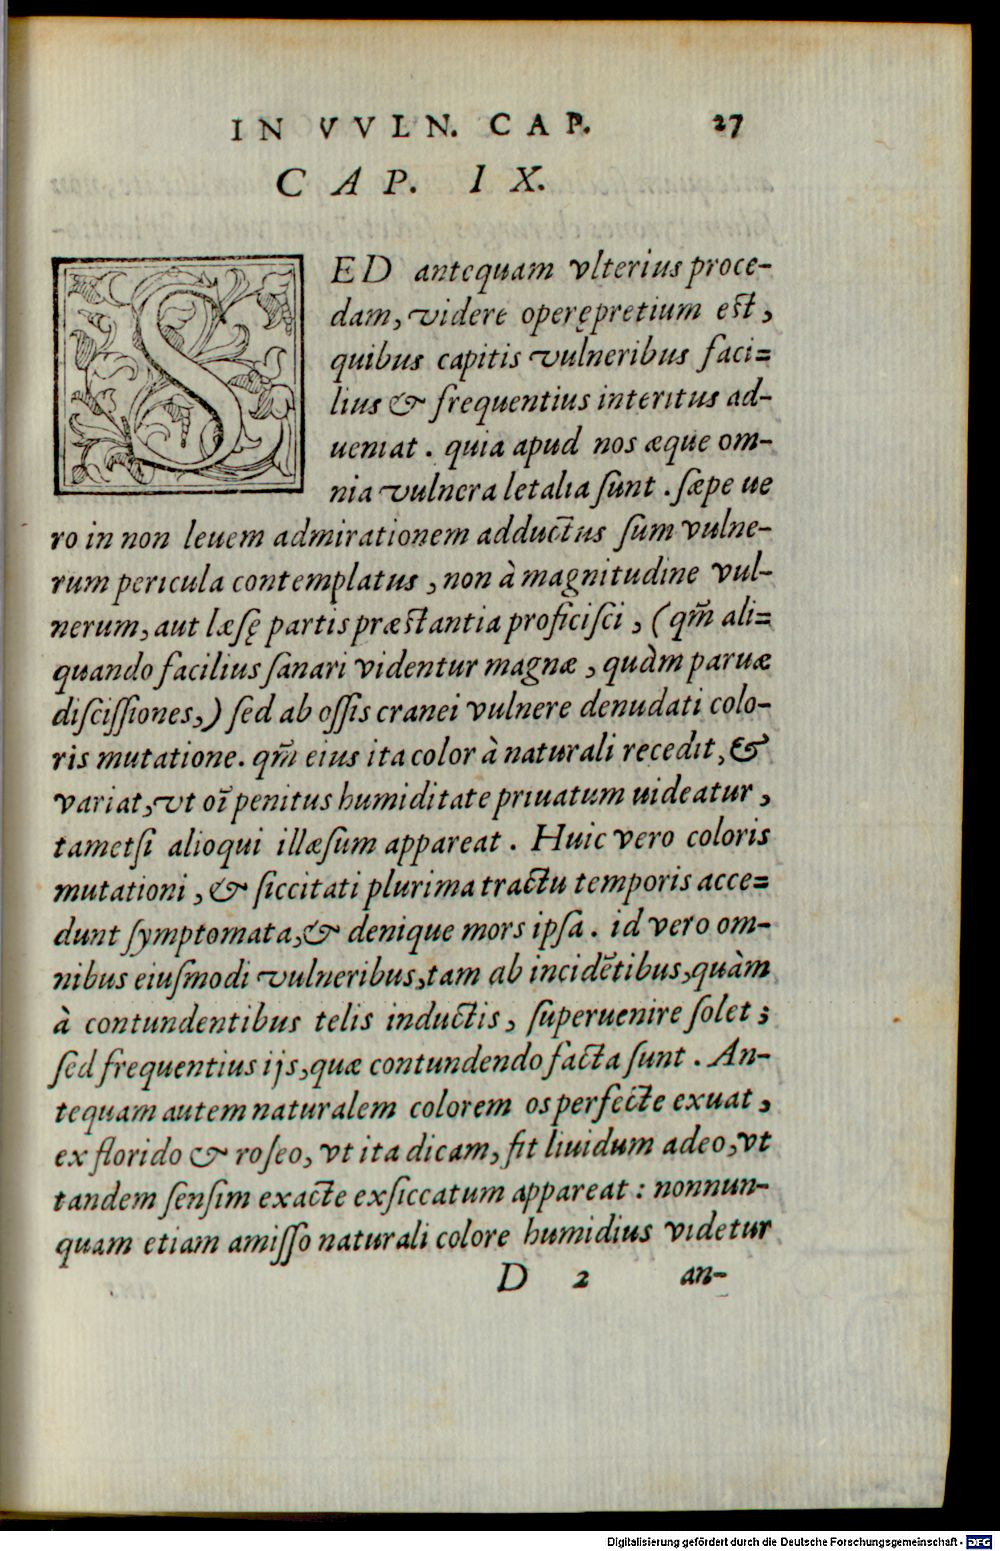 IN VVLN. CAP. 27
CAP. IX.
SED antequam vlterius proce-
dam, videre operępretium est,
quibus capitis vulneribus faci=
lius & frequentius interitus ad-
ueniat. quia apud nos æque om-
nia vulnera letalia ſunt. ſæpe ue
ro in non leuem admirationem adductus ſum vulne-
rum pericula contemplatus, non à magnitudine vul-
nerum, aut læſę partis præstantia proficiſci, (qm̃ ali=
quando facilius ſanari videntur magnæ, quàm paruæ
diſciſſiones,) ſed ab oſſis cranei vulnere denudati colo-
ris mutatione. qm̃ eius ita color à naturali recedit, &
variat, vt oĩ penitus humiditate priuatum uideatur,
tametſi alioqui illæſum appareat. Huic vero coloris
mutationi, & ſiccitati plurima tractu temporis acce=
dunt ſymptomata, & denique mors ipſa. id vero om-
nibus eiuſmodi vulneribus, tam ab incidẽtibus, quàm
à contundentibus telis inductis, ſuperuenire ſolet;
ſed frequentius ijs, quæ contundendo facta ſunt. An-
tequam autem naturalem colorem os perfecte exuat,
ex florido & roſeo, vt ita dicam, fit liuidum adeo, vt
tandem ſenſim exacte exſiccatum appareat: nonnun-
quam etiam amiſſo naturali colore humidius videtur
D 2 an-
Digitalisierung gefördert durch die Deutsche Forschungsgemeinschaft - DFG